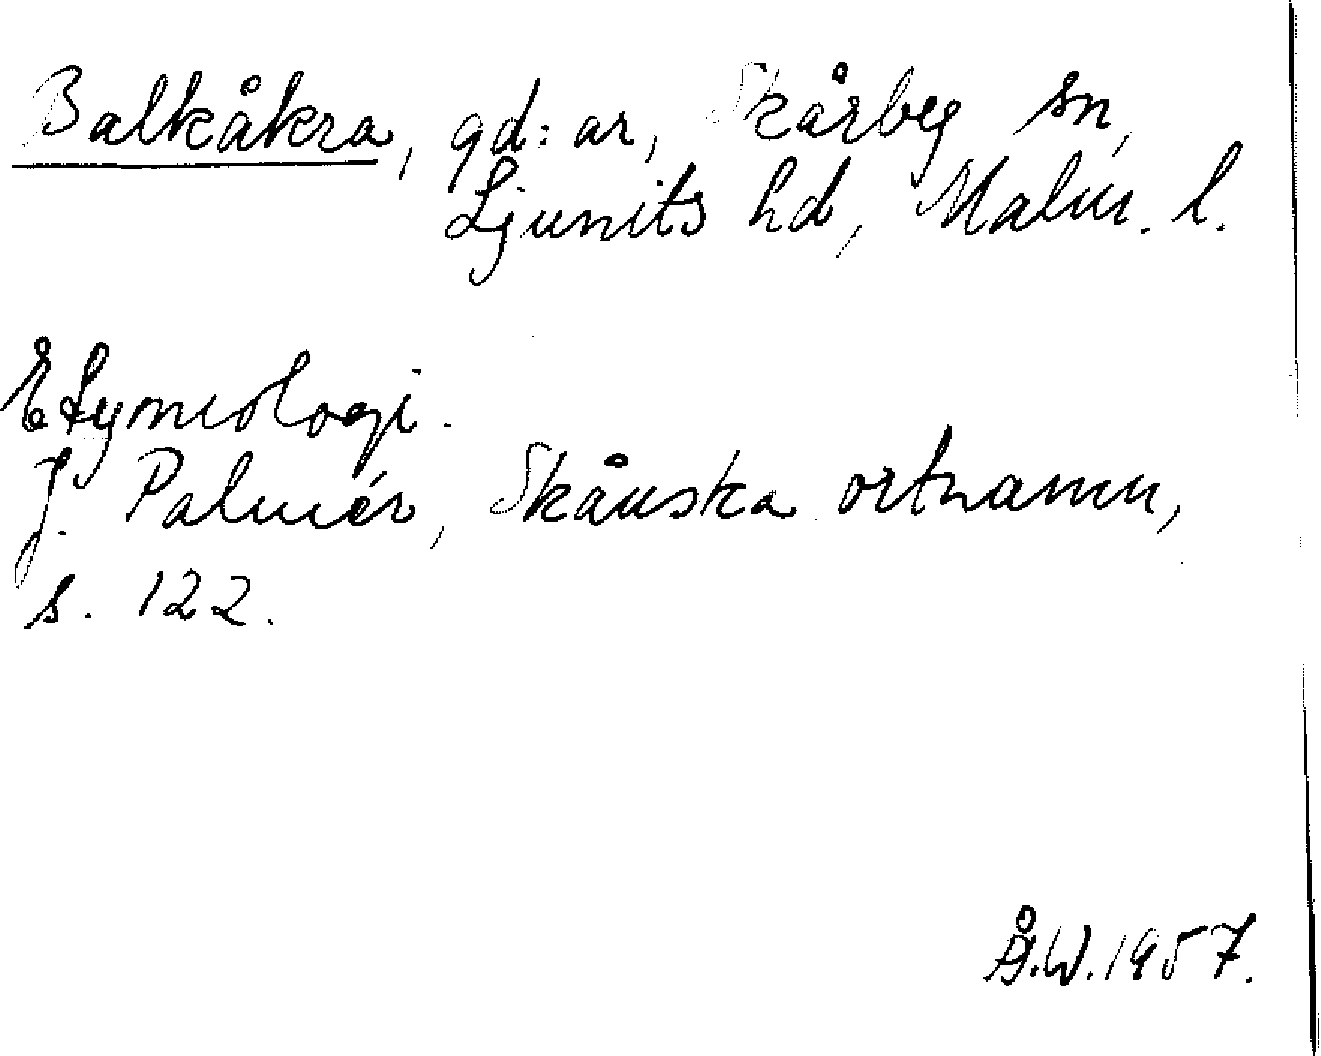 Balkåkra, gd:ar, Skårby sn,
Ljunits hd, Malm. l.
Etymologi.
J. Palmér, Skånska ortnamn,
s. 122.
Å.W. 1957.